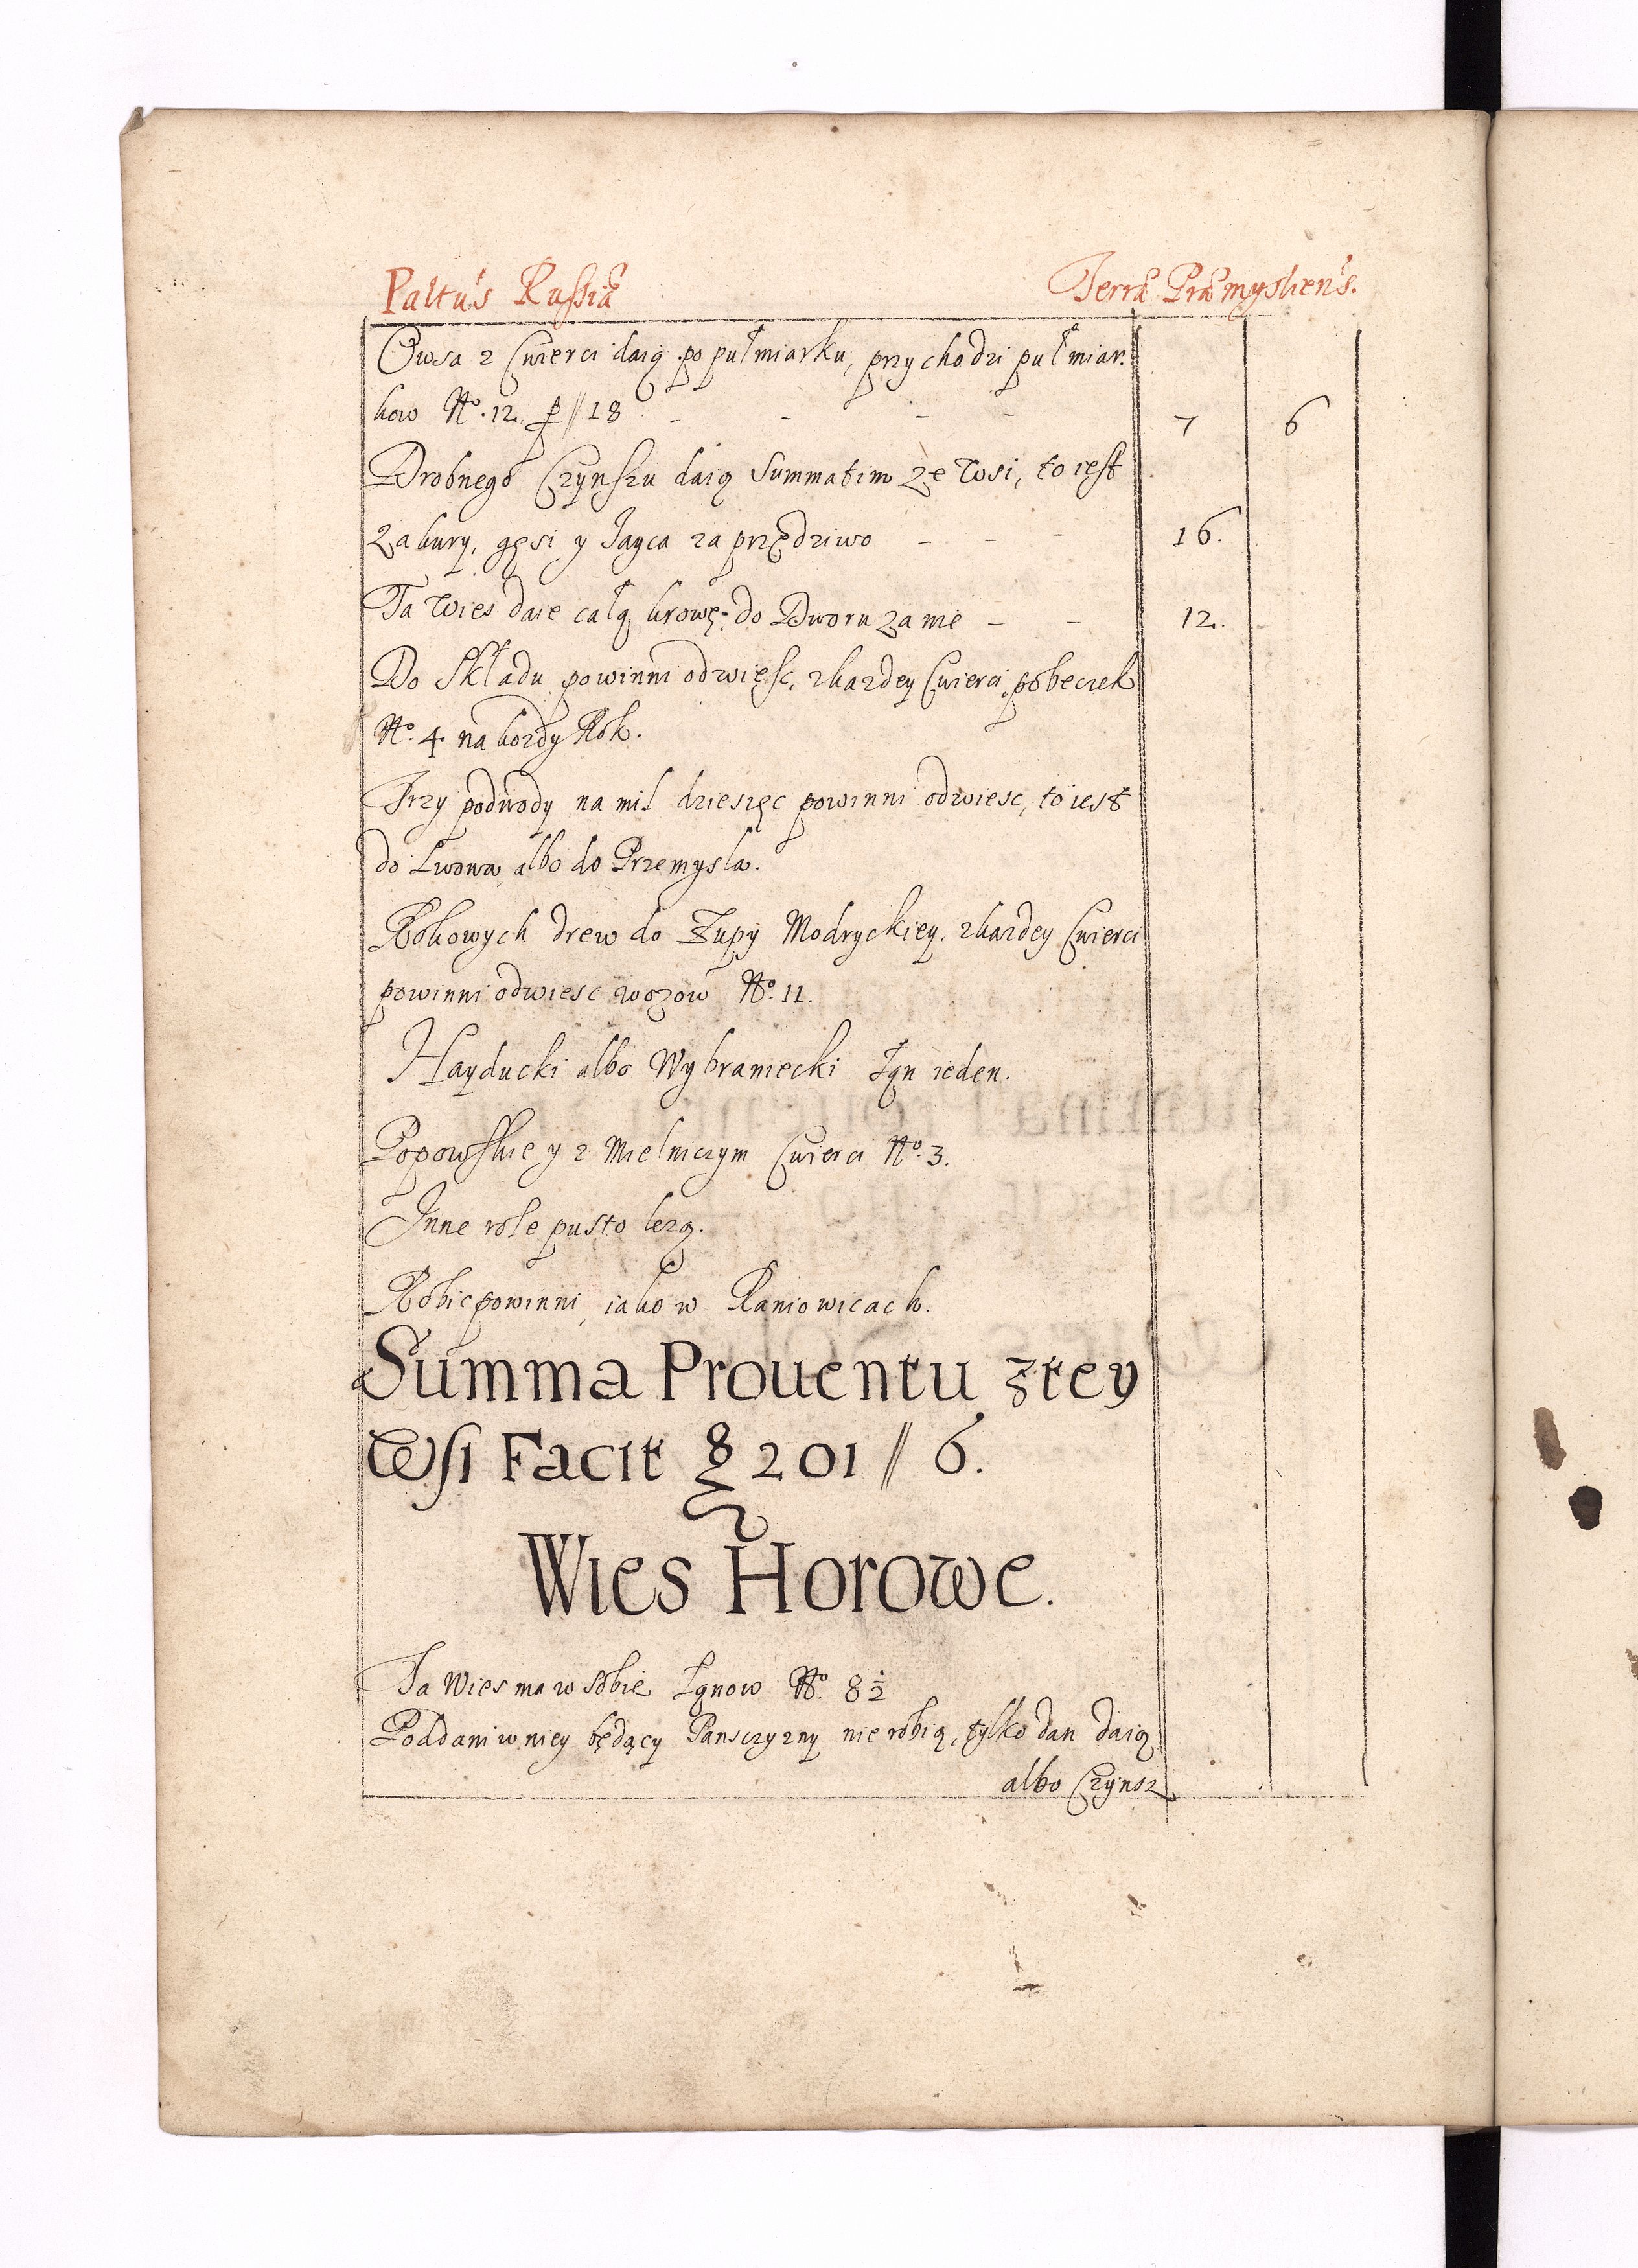 Paltus Russiæ Terræ Præmysliens.
Owsa z Cwierci daią po pułmiarku, przychodzi pułmiar-
kow No. 12. p // 18 - - - - 7 6
Drobnego Czynszu daią Summatim ze wsi, to iest
za kury, gęsi y Jayca za przędziwo - - - 16.
Ta Wies daie całą krowę do Dworu za nię - - 12.
Do Składu powinni odwięsc, zkazdey Cwierci pobeczek
No. 4 na kozdy Rok.
Trzy podwody na mil dziesięc powinni odwiesc, to iest
do Lwowa albo do Przemysla.
Rokowych drew do Zupy Modryckiey, zkazdey Cwierci
powinni odwiesc wozow No. 11.
Hayducki albo Wybraniecki Łąn ieden.
Popowskie y z Mielniczym Cwierci No. 3.
Inne role pusto lezą.
Robic powinni, iako w Raniowicach.
Summa Prouentu ztey
Wsi Facit 201 // 6.
Wies Horowe.
Ta Wies ma w sobie Łąnow No. 8 ½
Poddani w niey będący Panszczyzny nie robią, tylko dan daią
albo Czynsz